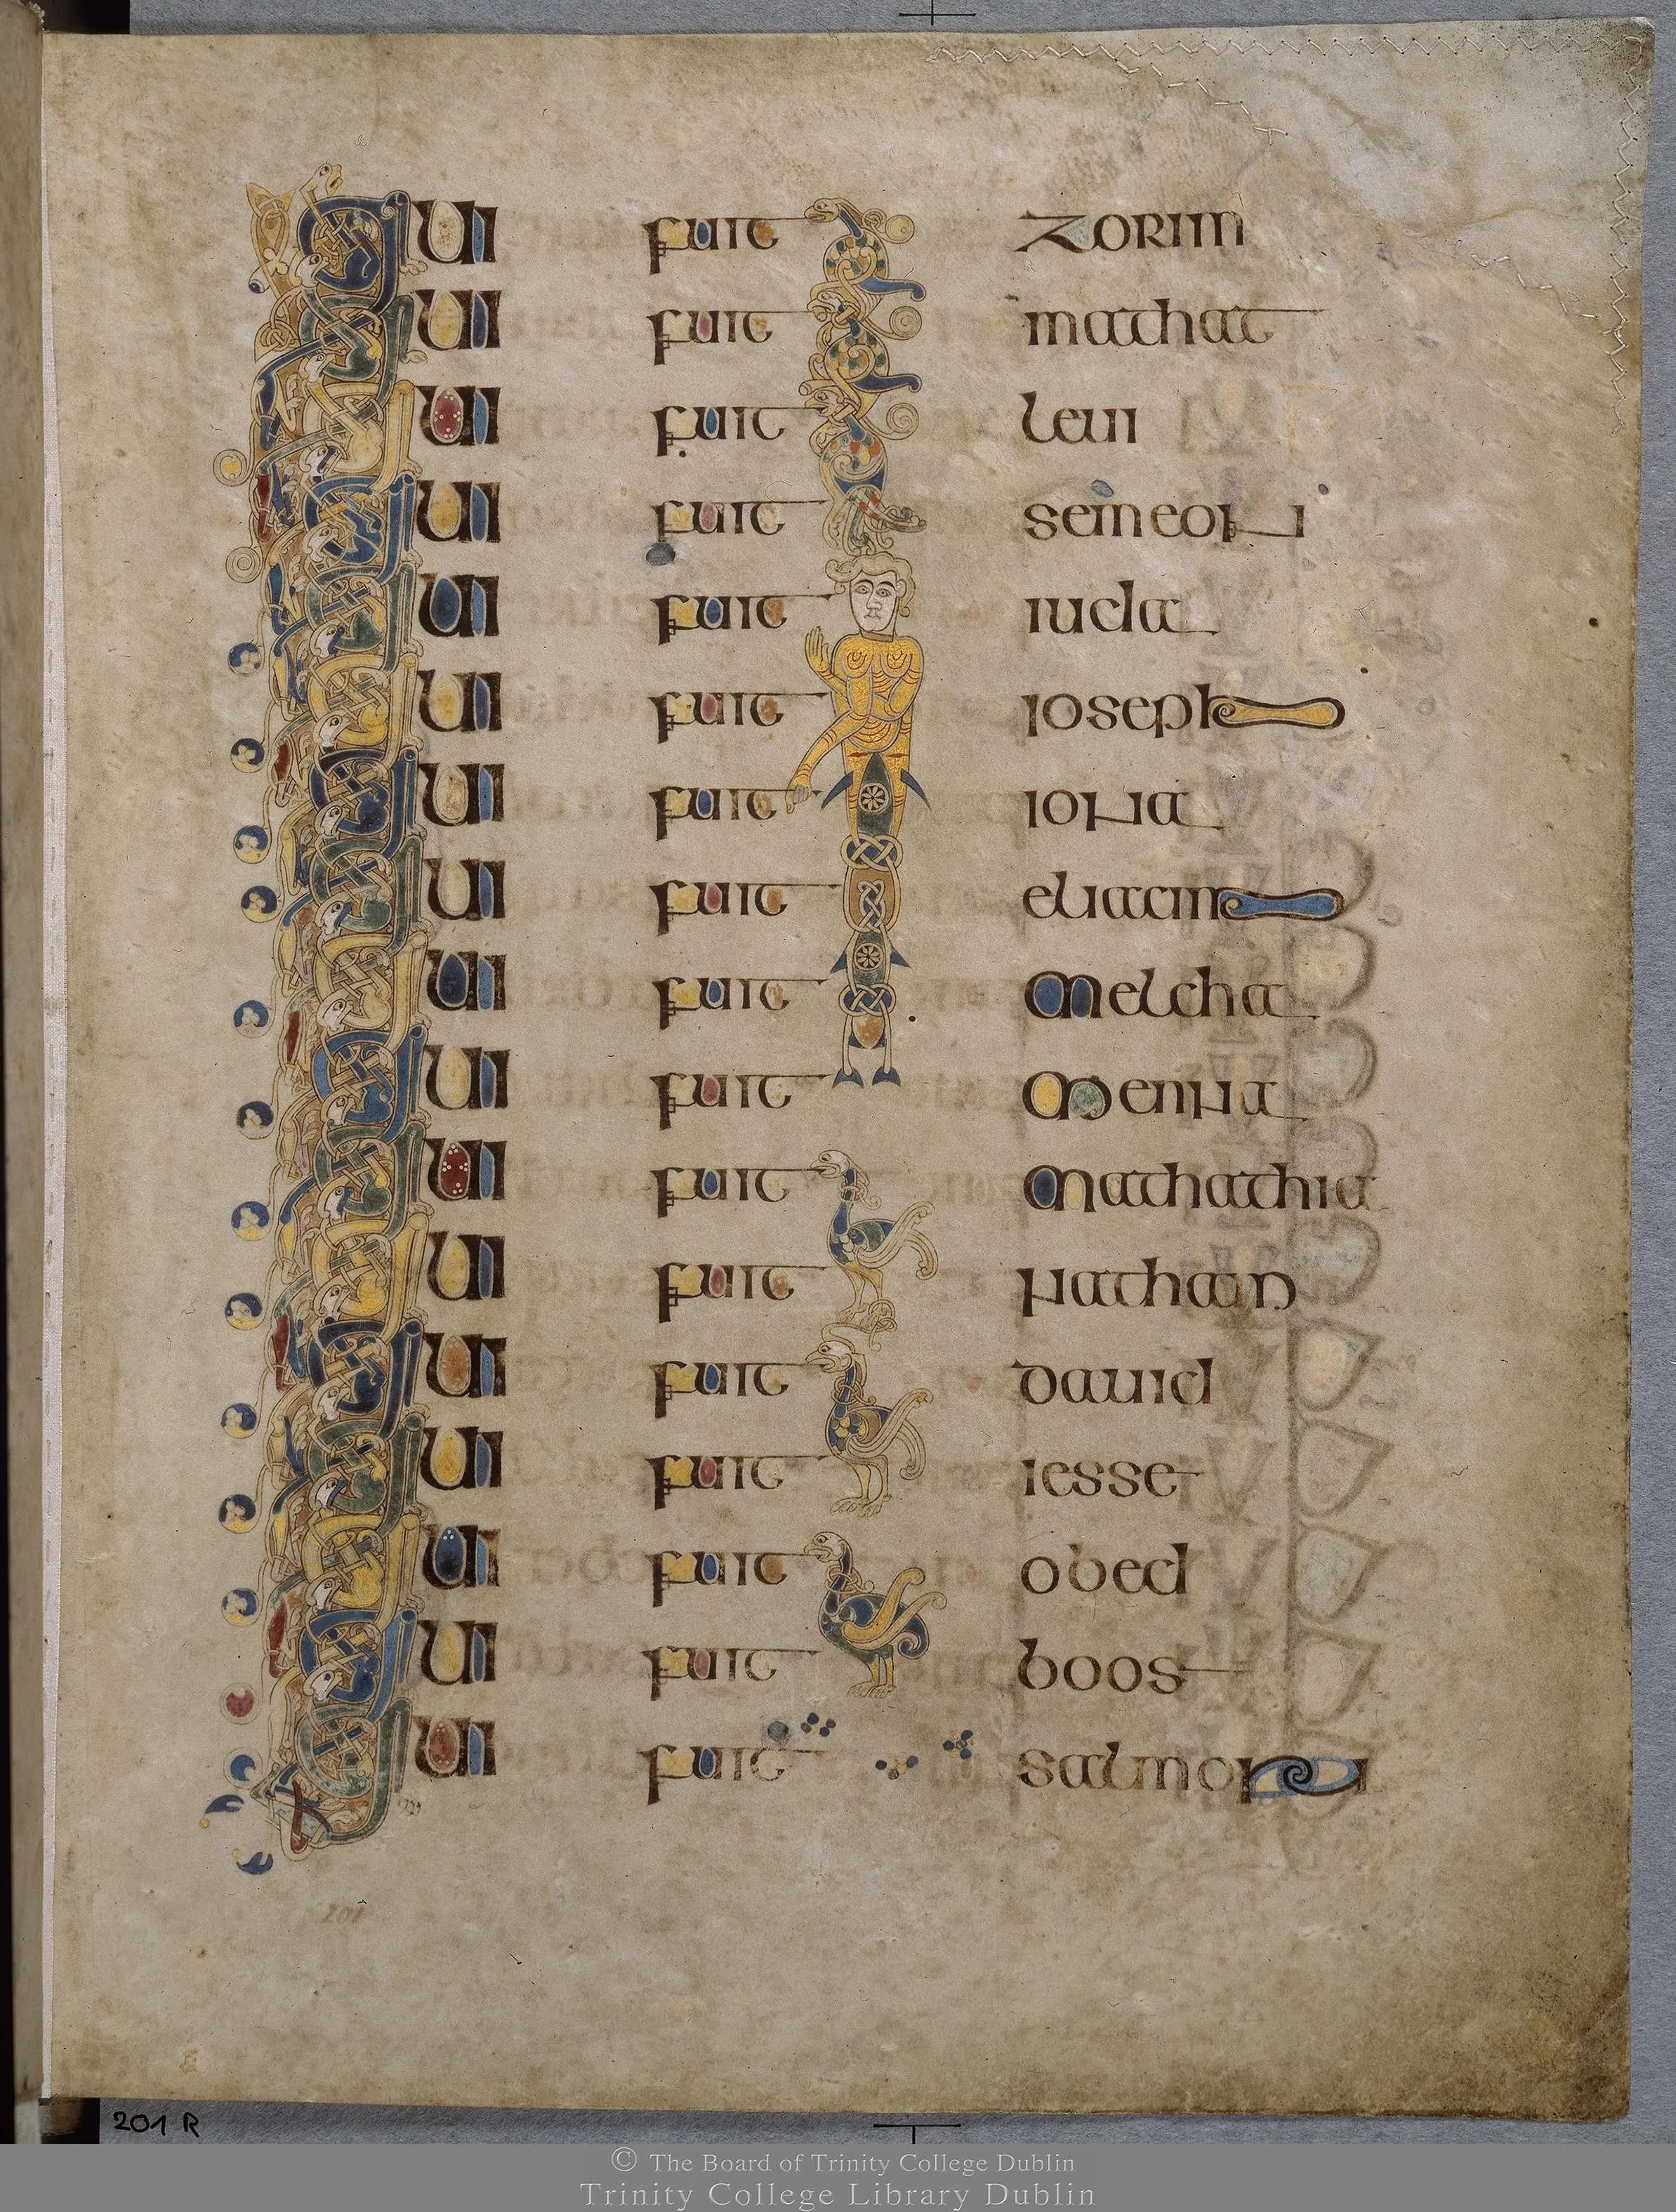 QUI fuit ZORIM
QUI fuit mathat
QUI fuit leui
QUI fuit semeon
QUI fuit iuda
QUI fuit ioseph
QUI fuit iona
QUI fuit eliacim
QUI fuit melcha
QUI fuit menna
QUI fuit mathathia
QUI fuit nathan
QUI fuit dauid
QUI fuit iesse
QUI fuit obed
QUI fuit boos
QUI fuit salmon
201
201 R
© The Board of Trinity College Dublin
Trinity College Library Dublin